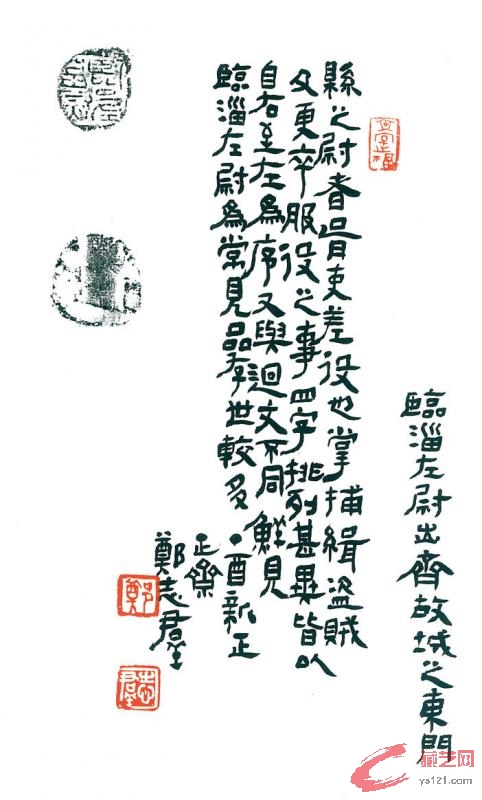 臨淄左尉出齊故城之東門
縣之尉者胥吏差役也掌捕緝盜賊
及更卒服役之事四字排列甚異皆以
自右至左為序又與迴文不同鮮見
臨淄左尉為常見品存世較多
酉新正
正齋
鄭志群
鄭
志群
藏艺网
ys121.com